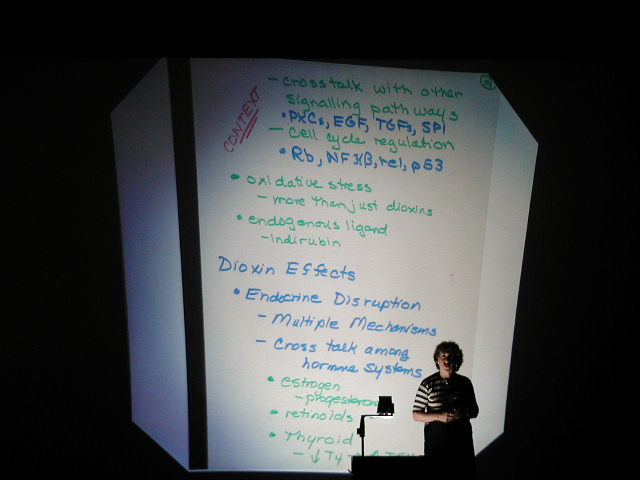 - crosstalk with other
signalling pathways
• PKCs, EGF, TGFs, SP1
- Cell cycle regulation
• Rb, NFKB, rel, p53
CONTEXT
• oxidative stress
- more than just dioxins
• endogenous ligand
- indirubin
Dioxin Effects
• Endocrine Disruption
- Multiple Mechanisms
- Cross talk among
hormone systems
• estrogen
- progesterone
• retinoids
• thyroid
- ↓ T4